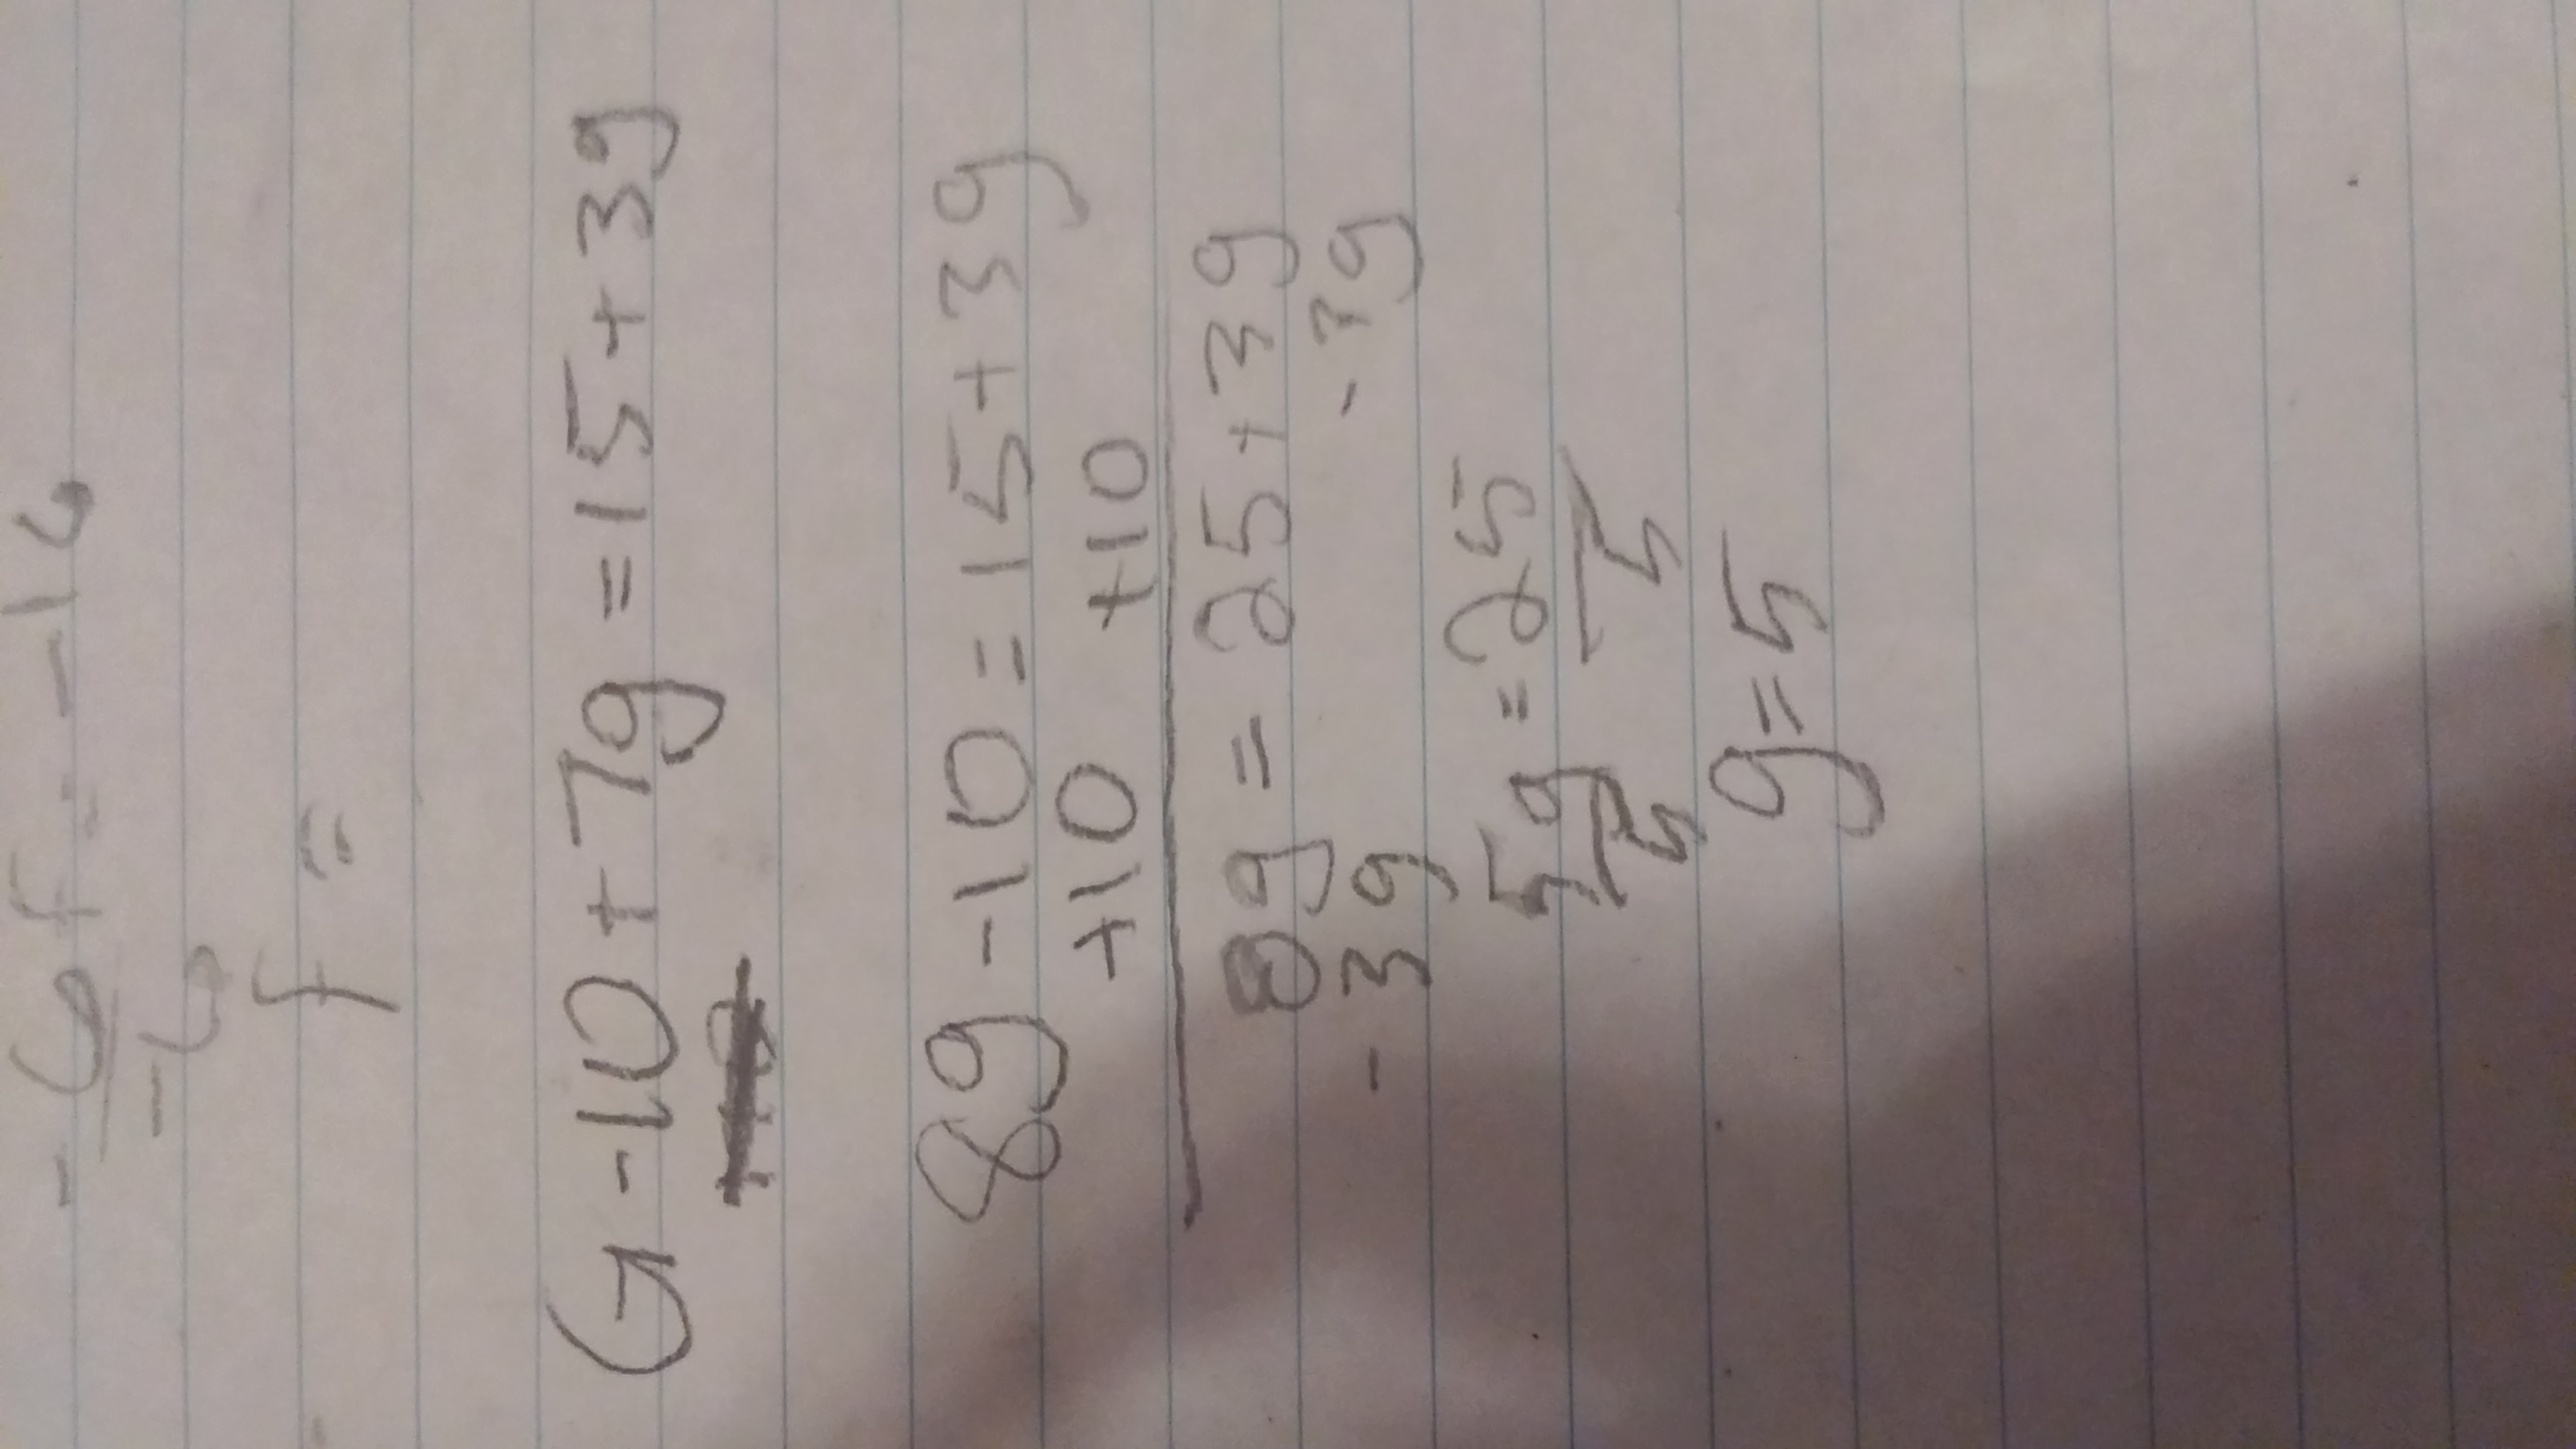 -6f = -16
-6
f =
G-10+7g=15+3g
8g-10=15+3g
+10 +10
8g = 25+3g
-3g -3g
5g=25
5 5
g=5